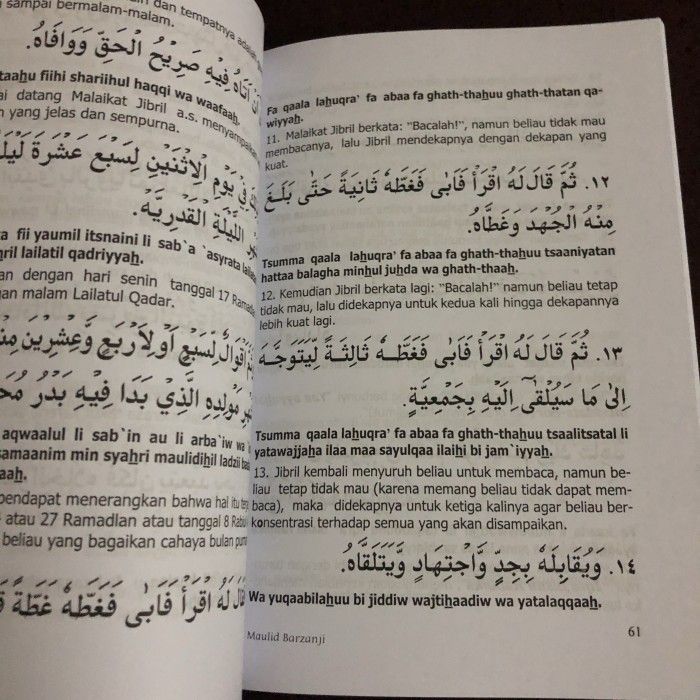 sampai bermalam-malam.
dan tempatnya
أَنْ أَتَاهُ فِيْهِ صَرِيْحُ الْحَقِّ وَوَافَاهُ
taahu fiihi shariihul haqqi wa waafaah.
datang Malaikat Jibril a.s. menyampaikan
yang jelas dan sempurna.
فِيْ يَوْمِ الْاِثْنَيْنِ لِسَبْعَ عَشْرَةَ
اللَّيْلَةِ الْقَدْرِيَّهْ.
fii yaumil itsnaini li sab`a `asyrata
lailatil qadriyyah.
dengan hari senin tanggal 17
malam Lailatul Qadar.
أَقْوَالٌ لِسَبْعٍ أَوْ لِأَرْبَعٍ وَّعِشْرِيْنَ
مَوْلِدِهِ الَّذِيْ بَدَا فِيْهِ بَدْرُ
aqwaalul li sab`in au li arba`iw wa
min syahri maulidihil ladzii
aah.
pendapat menerangkan bahwa hal itu
atau 27 Ramadlan atau tanggal 8
beliau yang bagaikan cahaya bulan
لَهُ اقْرَأْ فَأَبٰى فَغَطَّهُ غَطَّةً
Fa qaala lahuqra' fa abaa fa ghath-thahuu ghath-thatan qa-
wiyyah.
11. Malaikat Jibril berkata: "Bacalah!", namun beliau tidak mau
membacanya, lalu Jibril mendekapnya dengan dekapan yang
kuat.
١٢. ثُمَّ قَالَ لَهُ اقْرَأْ فَأَبٰى فَغَطَّهُ ثَانِيَةً حَتّٰى بَلَغَ
مِنْهُ الْجُهْدَ وَغَطَّاهُ.
Tsumma qaala lahuqra' fa abaa fa ghath-thahuu tsaaniyatan
hattaa balagha minhul juhda wa ghath-thaah.
12. Kemudian Jibril berkata lagi: "Bacalah!" namun beliau tetap
tidak mau, lalu didekapnya untuk kedua kali hingga dekapannya
lebih kuat lagi.
١٣. ثُمَّ قَالَ لَهُ اقْرَأْ فَأَبٰى فَغَطَّهُ ثَالِثَةً لِّيَتَوَجَّهَ
اِلٰى مَا سَيُلْقٰى اِلَيْهِ بِجَمْعِيَّةٍ.
Tsumma qaala lahuqra' fa abaa fa ghath-thahuu tsaalitsatal li
yatawajjaha ilaa maa sayulqaa ilaihi bi jam`iyyah.
13. Jibril kembali menyuruh beliau untuk membaca, namun be-
liau tetap tidak mau (karena memang beliau tidak dapat mem-
baca), maka didekapnya untuk ketiga kalinya agar beliau ber-
konsentrasi terhadap semua yang akan disampaikan.
١٤. وَيُقَابِلَهُ بِجِدٍّ وَّاجْتِهَادٍ وَّيَتَلَقَّاهُ.
Wa yuqaabilahuu bi jiddiw wajtihaadiw wa yatalaqqaah.
Maulid Barzanji
61